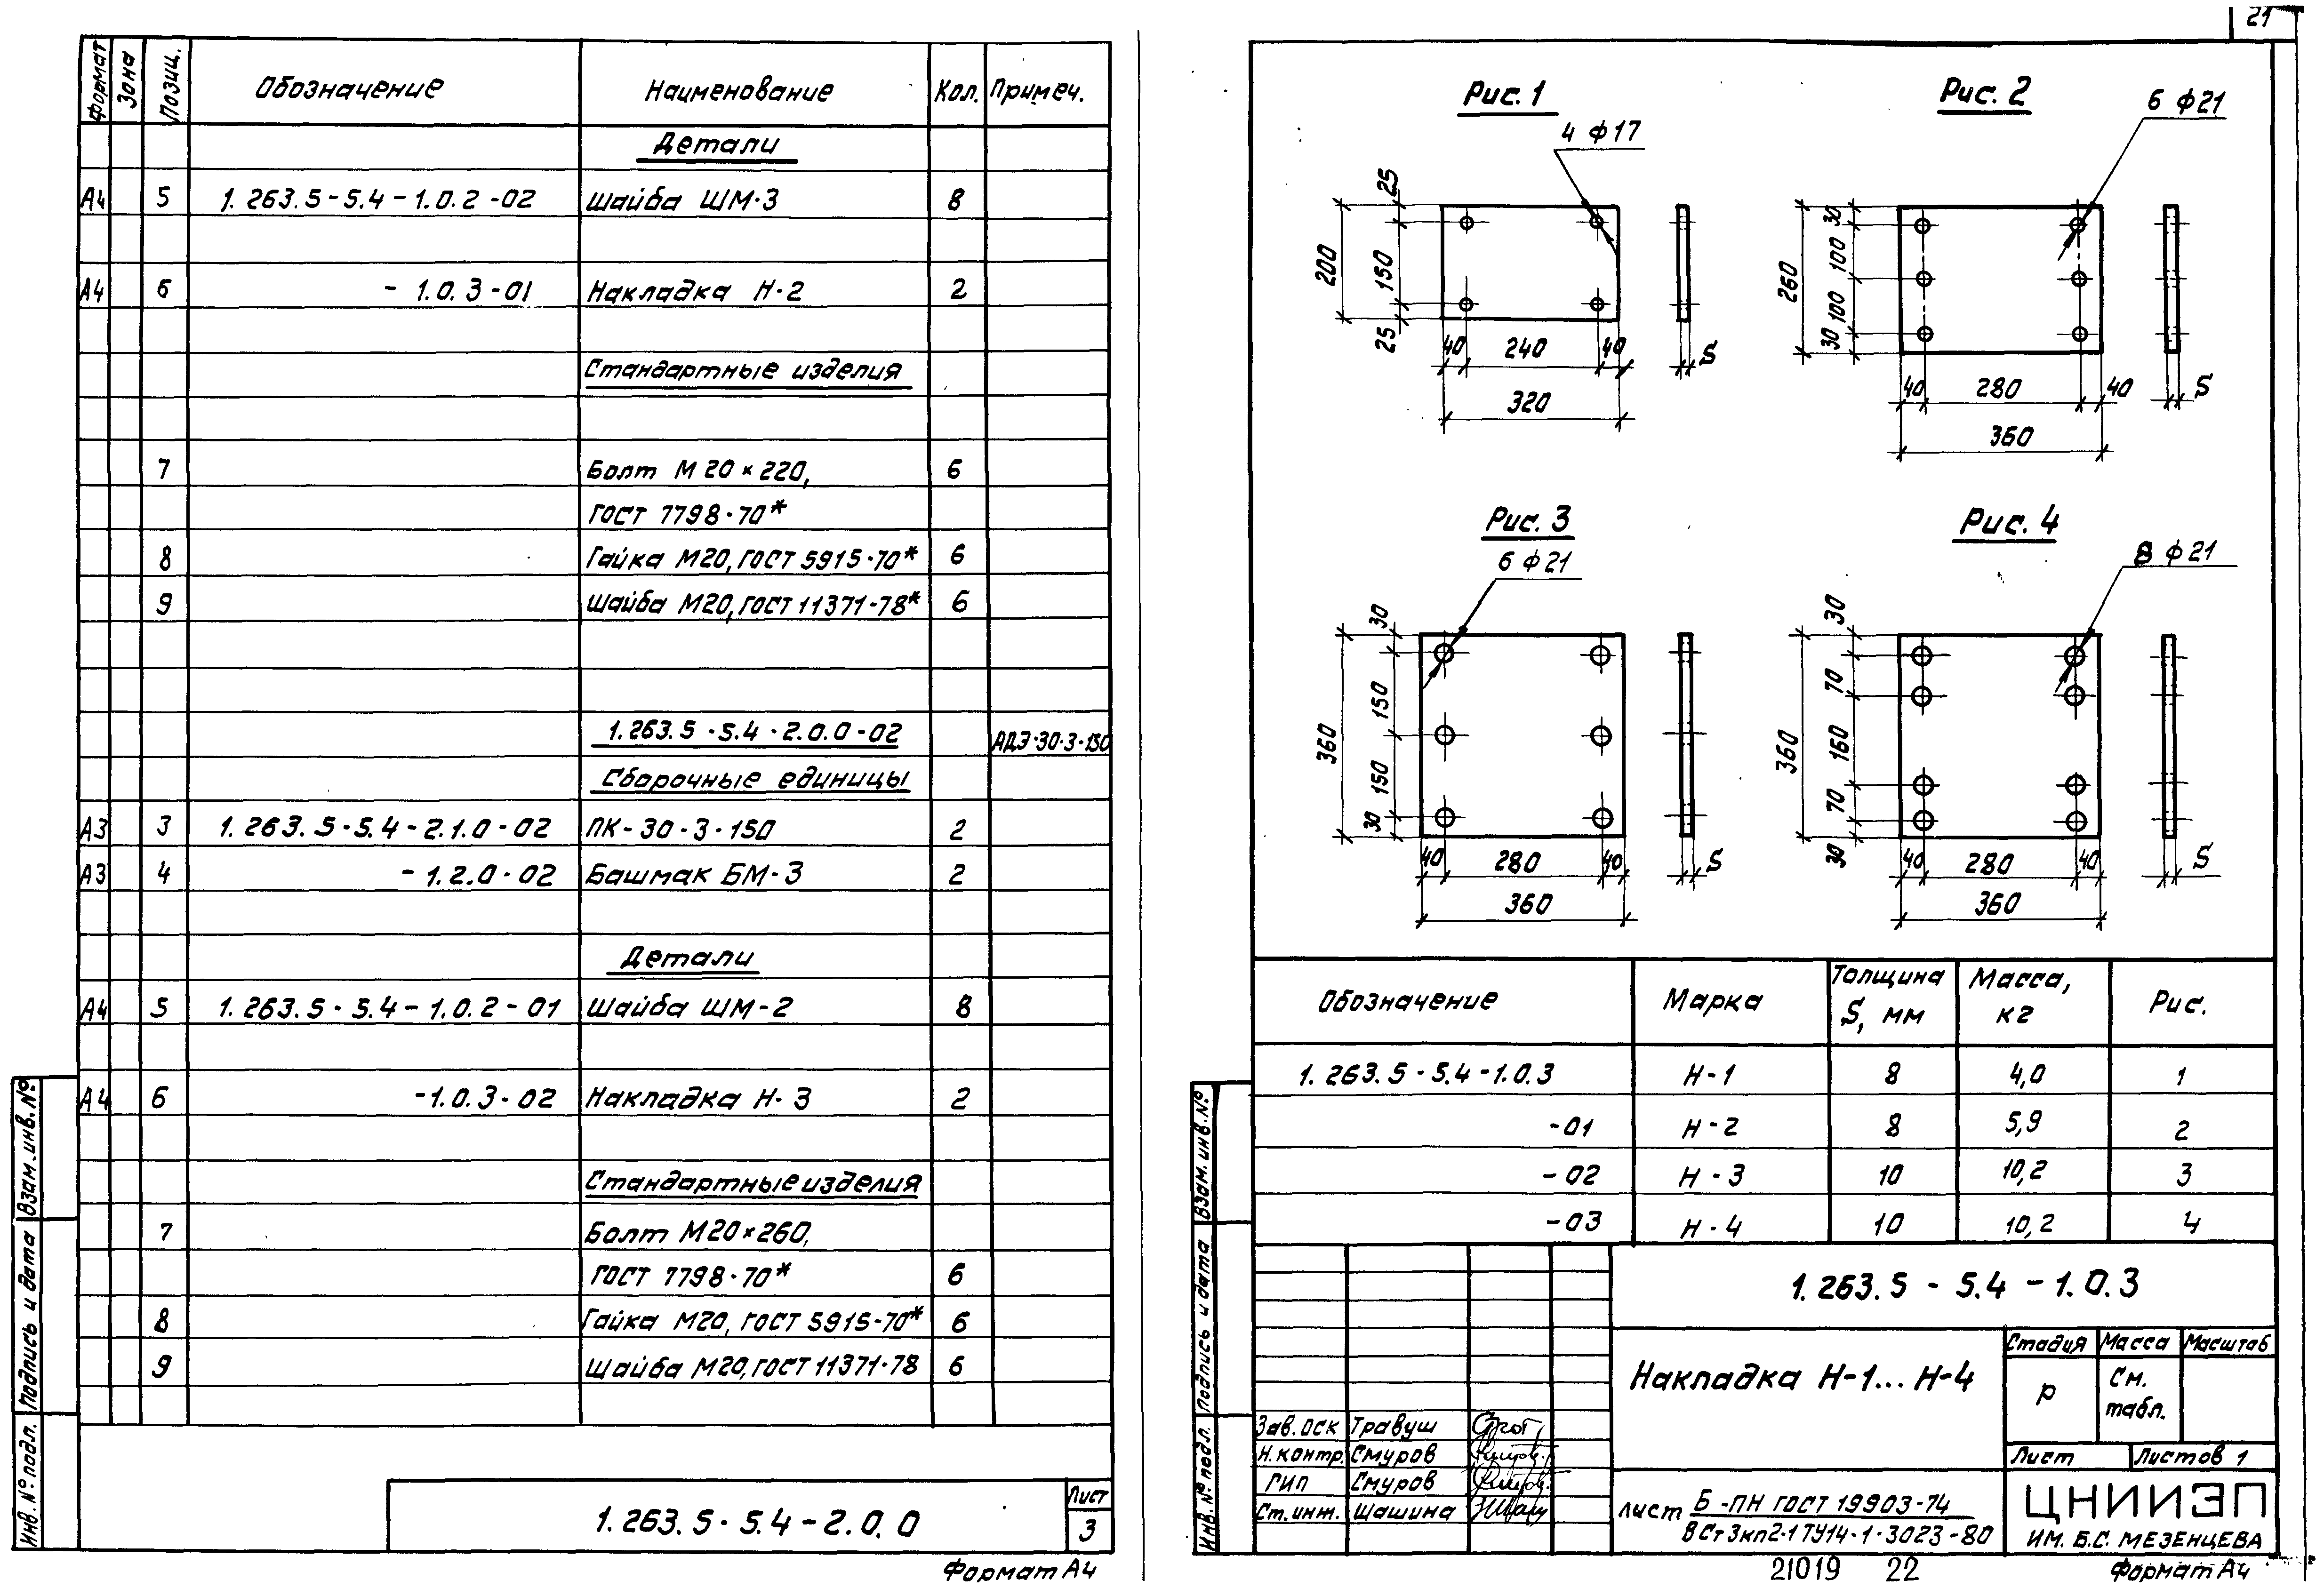 21
Формат Зона Позиц. Обозначение Наименование Кол. Примеч.
Детали
А4 5 1.263.5-5.4-1.0.2-02 Шайба ШМ-3 8
А4 6 -1.0.3-01 Накладка Н-2 2
Стандартные изделия
7 Болт М20×220, 6
ГОСТ 7798-70*
8 Гайка М20, ГОСТ 5915-70* 6
9 Шайба М20, ГОСТ 11371-78* 6
1.263.5-5.4-2.0.0-02 АДЭ-30-3-150
Сборочные единицы
А3 3 1.263.5-5.4-2.1.0-02 ПК-30-3-150 2
А3 4 -1.2.0-02 Башмак БМ-3 2
Детали
А4 5 1.263.5-5.4-1.0.2-01 Шайба ШМ-2 8
А4 6 -1.0.3-02 Накладка Н-3 2
Стандартные изделия
7 Болт М20×260,
ГОСТ 7798-70* 6
8 Гайка М20, ГОСТ 5915-70* 6
9 Шайба М20, ГОСТ 11371-78 6
Инв. № подл. Подпись и дата Взам. инв. №
1.263.5-5.4-2.0.0
Лист
3
Формат А4
Рис. 1
4 ф17
25
200
150
25
40 240 40
320
S
Рис. 2
6 ф21
30
260
100
100
30
40 280 40
360
S
Рис. 3
6 ф21
30
360
150
150
30
40 280 40
360
S
Рис. 4
8 ф21
30
360
70
160
70
30
40 280 40
360
S
Обозначение Марка Толщина S, мм Масса, кг Рис.
1.263.5-5.4-1.0.3 Н-1 8 4,0 1
-01 Н-2 8 5,9 2
-02 Н-3 10 10,2 3
-03 Н-4 10 10,2 4
Инв. № подл. Подпись и дата Взам. инв. №
1.263.5-5.4-1.0.3
Накладка Н-1... Н-4
Стадия Масса Масштаб
Р См. табл.
Лист Листов 1
Зав. ОСК Травуш
Н. контр. Смуров
ГИП Смуров
Ст. инж. Шашина
Лист Б-ПН ГОСТ 19903-74
ВСт3кп2-1 ТУ14-1-3023-80
ЦНИИЭП
ИМ. Б.С. МЕЗЕНЦЕВА
21019 22
Формат А4